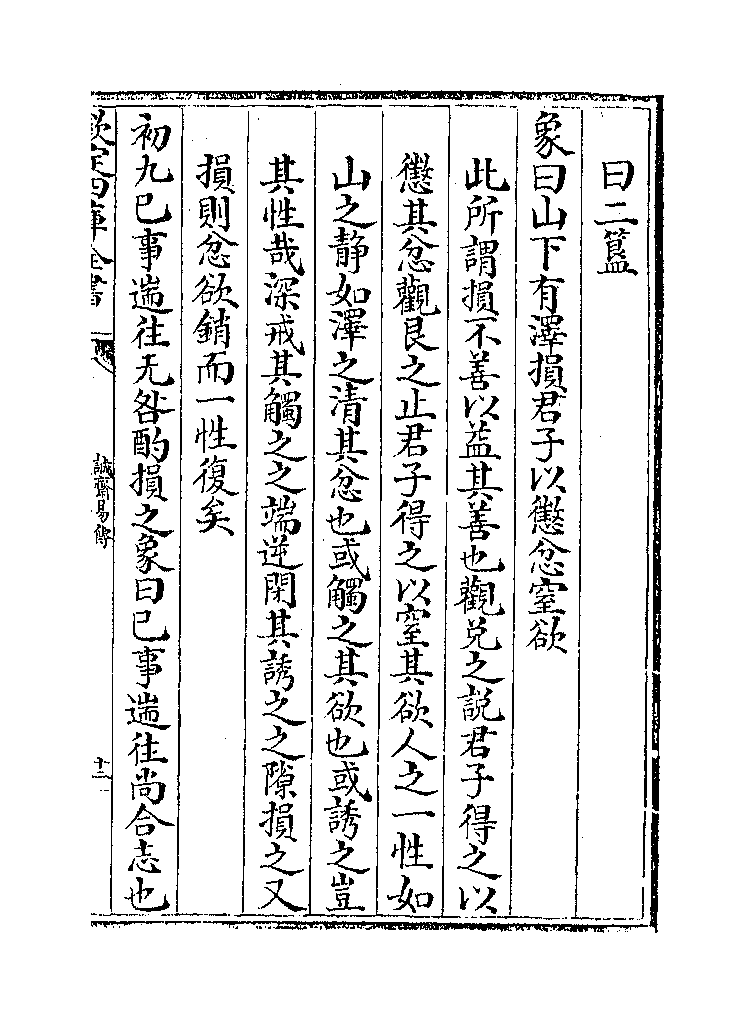 曰二簋
象曰山下有澤損君子以懲忿窒欲
此所謂損不善以益其善也觀兌之説君子得之以
懲其忿觀艮之止君子得之以窒其欲人之一性如
山之静如澤之清其忿也或觸之其欲也或誘之豈
其性哉深戒其觸之之端逆閑其誘之之隙損之又
損則忿欲銷而一性復矣
初九已事遄往无咎酌損之象曰已事遄往尚合志也
欽定四庫全書
誠齋易傳
十二